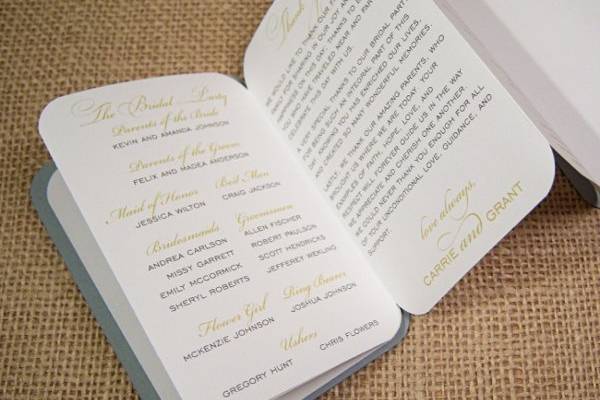 The Bridal Party
Parents of the Bride
KEVIN AND AMANDA JOHNSON
Parents of the Groom
FELIX AND MADEA ANDERSON
Maid of Honor
JESSICA WILTON
Best Man
CRAIG JACKSON
Bridesmaids
ANDREA CARLSON
MISSY GARRETT
EMILY MCCORMICK
SHERYL ROBERTS
Groomsmen
ALLEN FISCHER
ROBERT PAULSON
SCOTT HENDRICKS
JEFFEREY WEKLING
Flower Girl
MCKENZIE JOHNSON
Ring Bearer
JOSHUA JOHNSON
Ushers
GREGORY HUNT
CHRIS FLOWERS
Thank
WE WOULD LIKE TO THANK OUR
FOR SHARING IN OUR JOY AND
HAPPINESS ON THIS DAY. THANKS TO
WHO HAVE TRAVELED NEAR AND FAR
CELEBRATE THIS DAY WITH US.
A VERY SPECIAL THANKS TO OUR BRIDAL PARTY
FOR BEING SUCH AN INTEGRAL PART OF THIS
DAY. KNOWING YOU HAS ENRICHED OUR LIVES,
AND CREATED SO MANY WONDERFUL MEMORIES.
LASTLY, WE THANK OUR AMAZING PARENTS, WHO
BROUGHT US WHERE WE ARE TODAY. YOUR
EXAMPLES OF FAITH, HOPE, LOVE, AND
RESPECT WILL FOREVER GUIDE US IN THE WAY
WE APPRECIATE AND CHERISH ONE ANOTHER.
WE COULD NEVER THANK YOU ENOUGH FOR ALL
OF YOUR UNCONDITIONAL LOVE, GUIDANCE, AND
SUPPORT.
love always,
CARRIE and GRANT